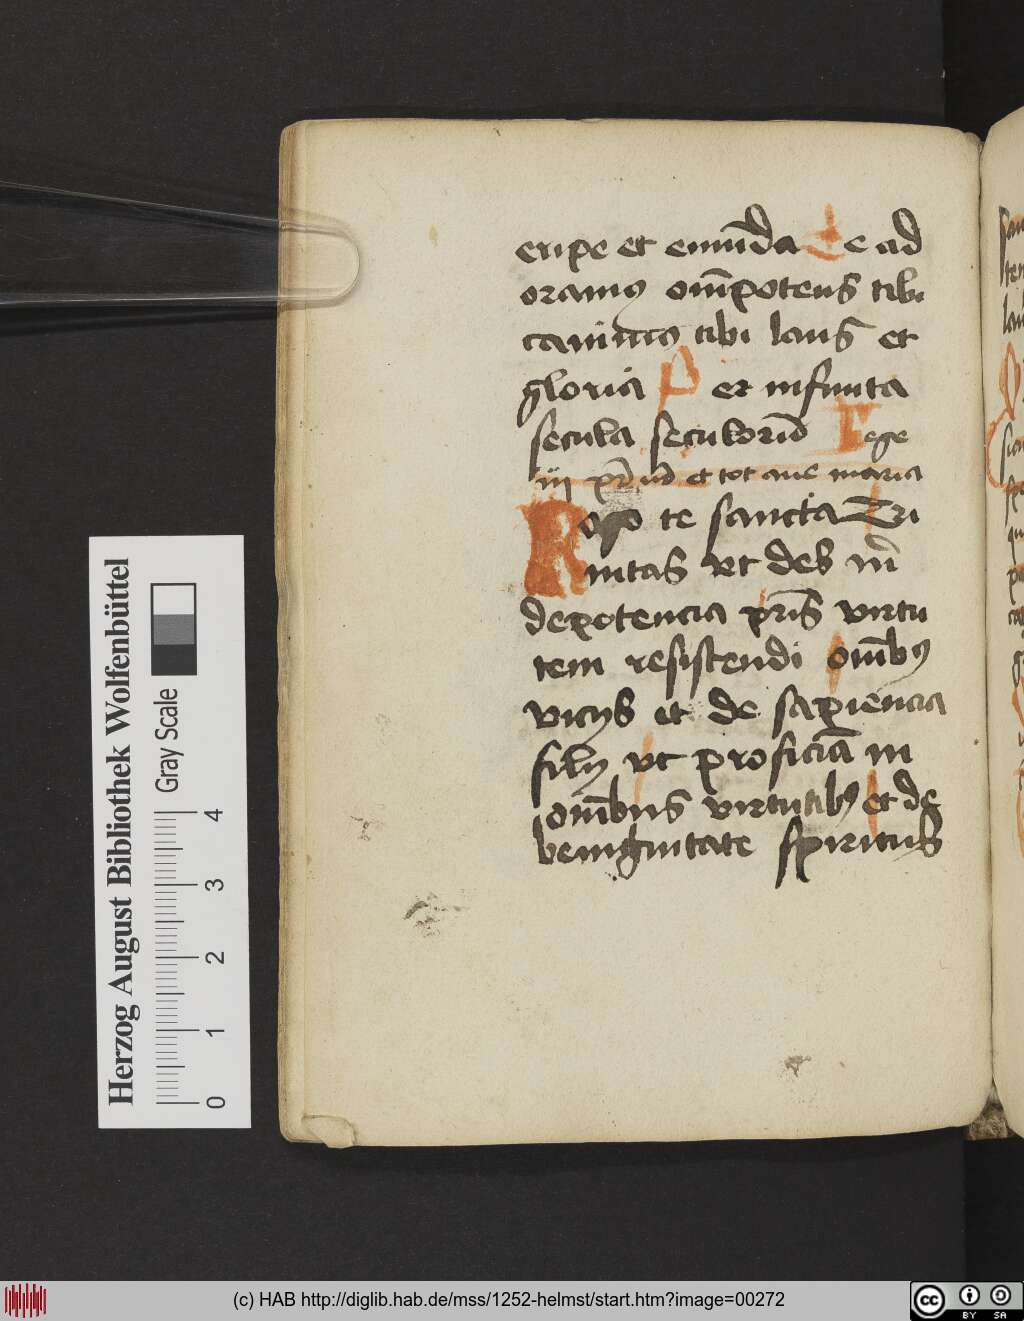 eripe et emūda Te ad
oramus om̄potens tibi
canimus tibi laus et
gloria P er infinita
secula seculorū lege
iij pr̄ nr̄ et tot aue maria
Rogo te sancta Tri
nitas vt des m̄
de potencia pr̄is virtu
tem resistendi om̄bus
vicijs et de sapiencia
filij vt proficiā in
om̄bus virtutibus et de
benignitate spiritus
Herzog August Bibliothek Wolfenbüttel
Gray Scale
0 1 2 3 4
(c) HAB http://diglib.hab.de/mss/1252-helmst/start.htm?image=00272
cc BY SA